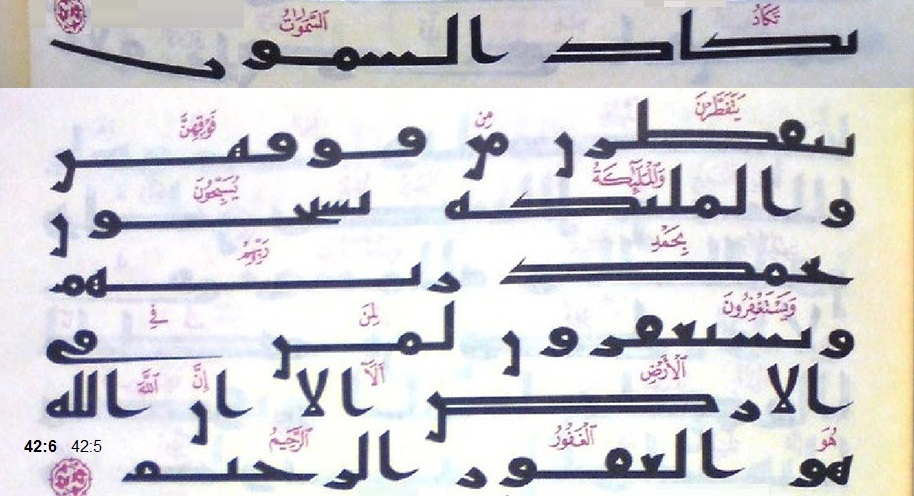 تَكَادُ ٱلسَّمَٰوَٰتُ
تكاد السموت
يَتَفَطَّرْنَ مِن فَوْقِهِنَّ
يتفطرن من فوقهن
وَٱلْمَلَٰٓئِكَةُ يُسَبِّحُونَ
والمليكه يسبحون
بِحَمْدِ رَبِّهِمْ
بحمد ربهم
وَيَسْتَغْفِرُونَ لِمَن فِي
ويستغفرون لمن في
ٱلْأَرْضِ أَلَآ إِنَّ ٱللَّهَ
الارض الا ان الله
هُوَ ٱلْغَفُورُ ٱلرَّحِيمُ
هو الغفور الرحيم
42:6 42:5